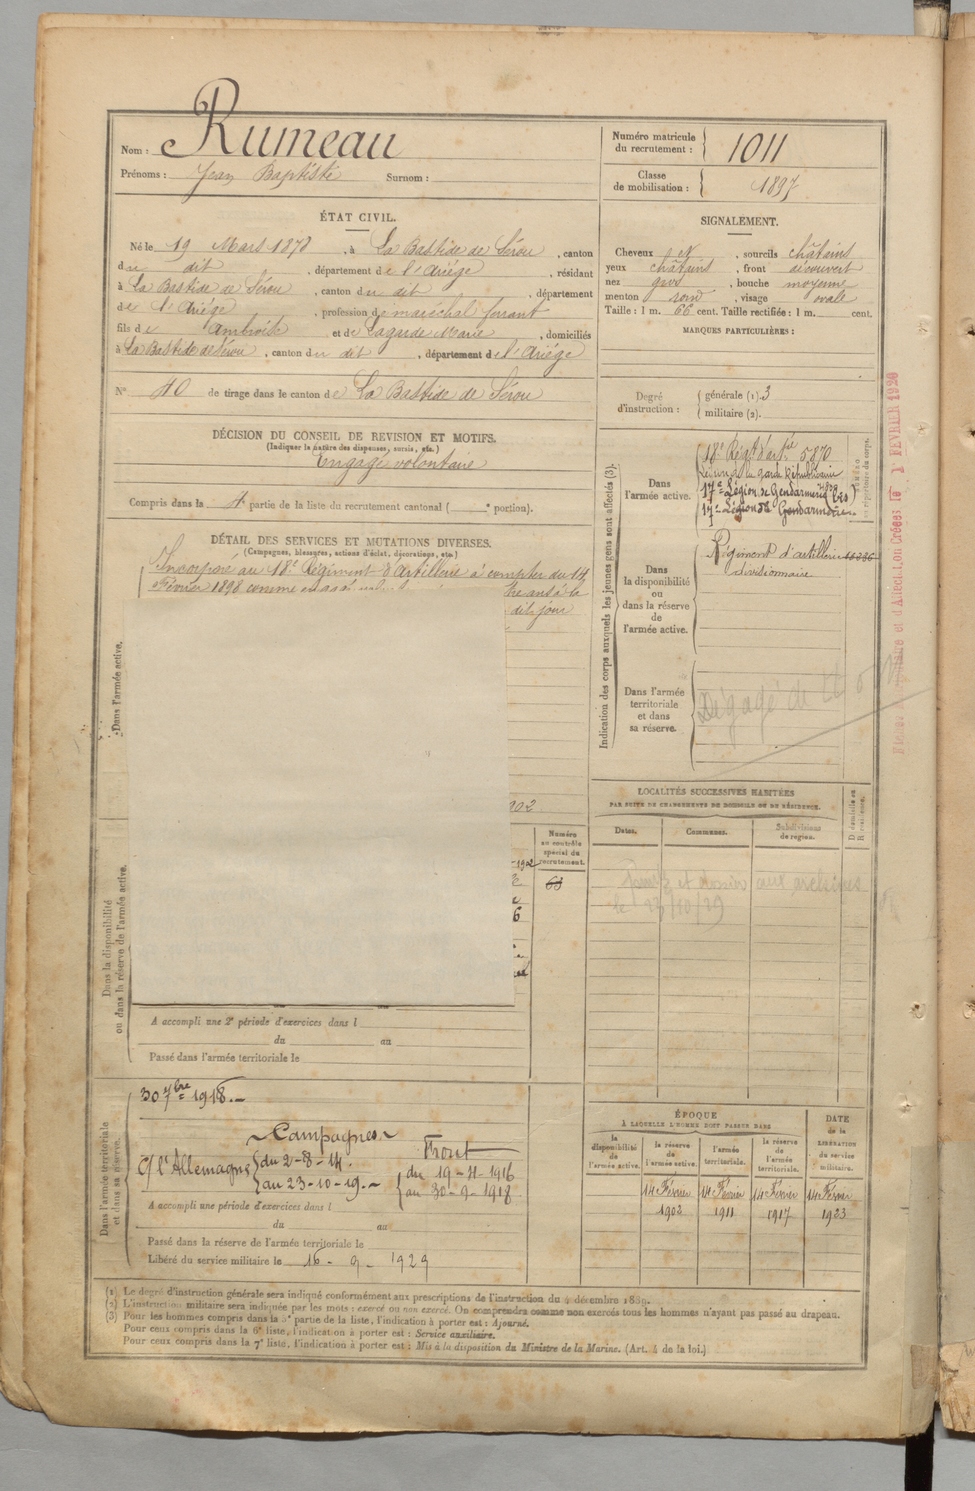 Nom : Rumeau
Prénoms : Jean Baptiste Surnom :
Numéro matricule
du recrutement : 1011
Classe
de mobilisation : 1897
ÉTAT CIVIL.
Né le 19 Mars 1878, à La Bastide de Sérou, canton
du dit, département de l'Ariège, résidant
à La Bastide de Sérou, canton du dit, département
de l'Ariège, profession de maréchal ferrant
fils de Ambroise et de Lagarde Marie, domiciliés
à La Bastide de Sérou, canton du dit, département de l'Ariège
SIGNALEMENT.
Cheveux et, sourcils châtains
yeux châtains, front découvert
nez gros, bouche moyenne
menton rond, visage ovale
Taille : 1 m. 66 cent. Taille rectifiée : 1 m. cent.
MARQUES PARTICULIÈRES :
N° 40 de tirage dans le canton de La Bastide de Sérou
Degré
d'instruction :
générale (1). 3
militaire (2).
DÉCISION DU CONSEIL DE REVISION ET MOTIFS.
(Indiquer la nature des dispenses, sursis, etc.)
Engagé volontaire
Compris dans la 4 partie de la liste du recrutement cantonal ( e portion).
DÉTAIL DES SERVICES ET MUTATIONS DIVERSES.
(Campagnes, blessures, actions d'éclat, décorations, etc.)
Incorporé au 18e Régiment d'Artillerie à compter du 14
Février 1898 comme engagé
ans à la
dit jour
902
Dans l'armée active.
Dans la disponibilité
ou dans la réserve de l'armée active.
Numéro
au contrôle
spécial du
recrutement.
63
1902
6
A accompli une 2e période d'exercices dans l
du au
Passé dans l'armée territoriale le
Dans l'armée territoriale
et dans sa réserve.
30 7bre 1918.
Campagnes
C/ l'Allemagne
du 2-8-14.
au 23-10-19.
Front
du 19-4-1916
au 30-9-1918
A accompli une période d'exercices dans l
du au
Passé dans la réserve de l'armée territoriale le
Libéré du service militaire le 16-9-1929
Indication des corps auxquels les jeunes gens sont affectés (3).
Dans
l'armée active.
18e Régt d'artie 5870
Légion de la garde Républicaine
17e Légion de Gendarmerie
17e Légion de Gendarmerie
Dans
la disponibilité
ou
dans la réserve
de
l'armée active.
Régiment d'artillerie
divisionnaire
Dans l'armée
territoriale
et dans
sa réserve.
Dégagé de
LOCALITÉS SUCCESSIVES HABITÉES
PAR SUITE DE CHANGEMENTS DE DOMICILE OU DE RÉSIDENCE.
Dates.
Communes.
Subdivisions
de région.
D. domicile ou
R. résidence.
et dossier aux archives
le 23/10/29
ÉPOQUE
À LAQUELLE L'HOMME DOIT PASSER DANS
la
disponibilité
de
l'armée active.
la réserve
de
l'armée active.
l'armée
territoriale.
la réserve
de
l'armée
territoriale.
DATE
de la
LIBÉRATION
du service
militaire.
14 Février 14 Février 14 Février 14 Février
1902 1911 1917 1923
(1) Le degré d'instruction générale sera indiqué conformément aux prescriptions de l'instruction du 4 décembre 1889.
(2) L'instruction militaire sera indiquée par les mots : exercé ou non exercé. On comprendra comme non exercés tous les hommes n'ayant pas passé au drapeau.
(3) Pour les hommes compris dans la 5e partie de la liste, l'indication à porter est : Ajourné.
Pour ceux compris dans la 6e liste, l'indication à porter est : Service auxiliaire.
Pour ceux compris dans la 7e liste, l'indication à porter est : Mis à la disposition du Ministre de la Marine. (Art. 4 de la loi.)